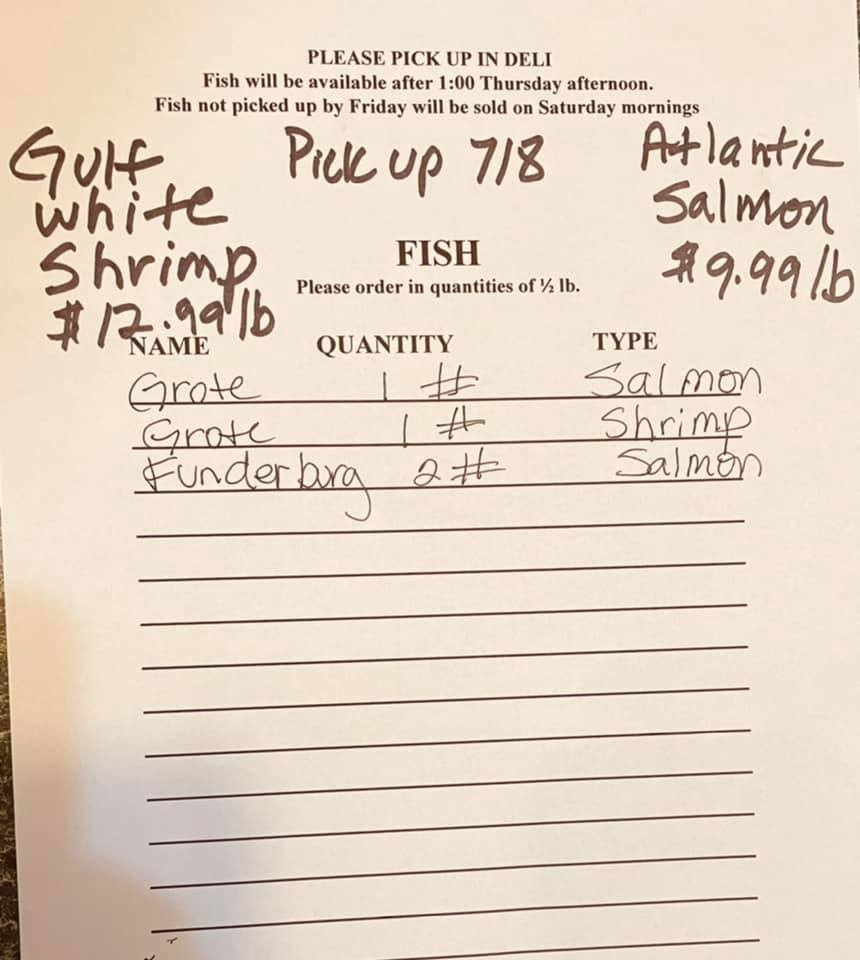 PLEASE PICK UP IN DELI
Fish will be available after 1:00 Thursday afternoon.
Fish not picked up by Friday will be sold on Saturday mornings
Gulf
white
Shrimp
$12.99 lb
Pick up 7/8
Atlantic
Salmon
$9.99 lb
FISH
Please order in quantities of ½ lb.
NAME QUANTITY TYPE
Grote 1 # Salmon
Grote 1 # Shrimp
Funderburg 2 # Salmon